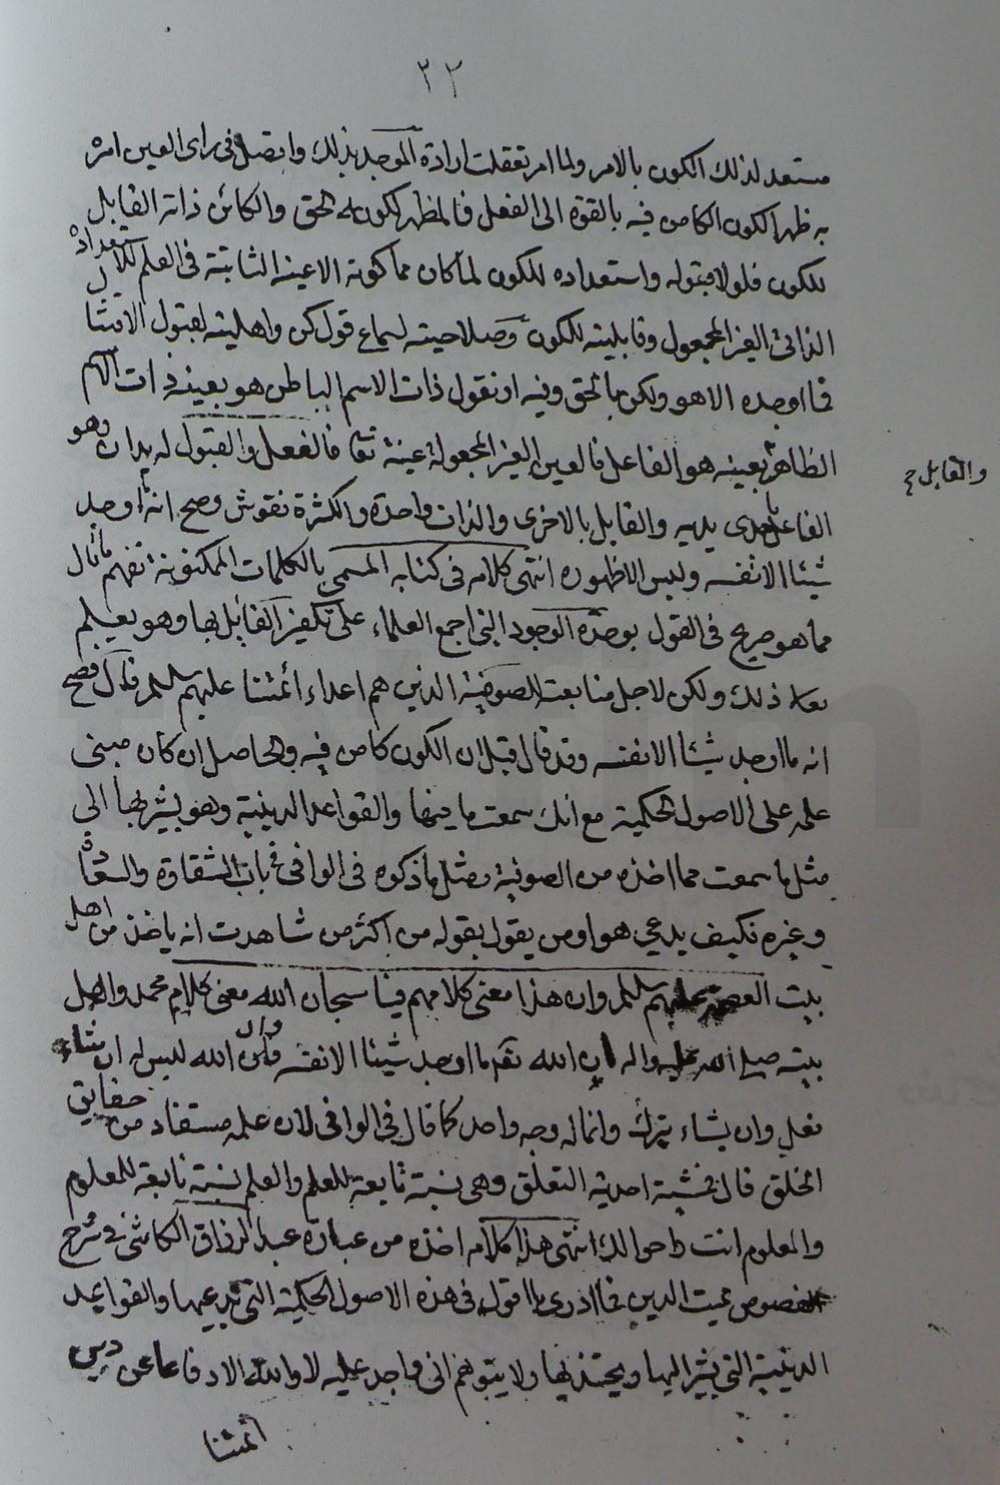 ٣٢
مستعد لذلك الكون بالامر ولما امر تعقلت ارادة الموجد بذلك واتصل في راى العين امره
به ظهر الكون الكامن فيه بالقوة الى الفعل فالمظهر لكونه الحق والكائن ذاته القابل
للكون فلولا قبوله واستعداده للكون لما كان فما كونه الا عينه الثابتة في العلم لاستعداده
الذاتى الغير المجعول وقابليته للكون وصلاحيته لسماع قول كن واهليته لقبول الامتثال
فما اوجده الا هو ولكن بالحق وفيه او نقول ذات الاسم الباطن هو بعينه ذات الاسم
الظاهر والقابل بعينه هو الفاعل فالعين الغير المجعولة عينه تعالى فالفعل والقبول له يدان وهو
الفاعل باحدى يديه والقابل بالاخرى والذات واحدة والكثرة نقوش وصح انه ما اوجد
شيئا الا نفسه وليس الا ظهوره انتهى كلامه في كتابه المسمى بالكلمات المكنونة تفهم ما قال
مما هو صريح في القول بوحدة الوجود التى اجمع العلماء على تكفير القائل بها وهو يعلم
ذلك ولكن لاجل متابعت الصوفية الذين هم اعداء ائمتنا عليهم سلم قال فصح
انه ما اوجد شيئا الا نفسه وقد قال قبل ان الكون كامن فيه والحاصل ان كان مبنى
علمه على الاصول الحكمية مع انك سمعت ما فيها والقواعد الدينية وهو يشير بها الى
مثل ما سمعت مما اخذه من الصوفية ومثل ما ذكره في الوافى في باب الشقاوة والسعادة
وغيره فكيف يدعى هو او من يقول بقوله من اكثر من شاهدت انه ياخذ من اهل
بيت العصمة عليهم سلم وان هذا معنى كلامهم فيا سبحان الله معنى كلام محمد واهل
بيته صلى الله عليه واله ان الله تعالى ما اوجد شيئا الا نفسه وان الله ليس له ان شاء
فعل وان يشاء ترك وانما له وجه واحد كما قال في الوافى لان علمه مستفاد من حقايق
الخلق قال فمشية احدية التعلق وهى نسبة تابعة للعلم والعلم نسبة تابعة للمعلوم
والمعلوم انت واحوالك انتهى هذا كلامه اخذه من عبارة عبد الرزاق الكاشى في شرح
فصوص مميت الدين فما ادرى ما اقول في هذه الاصول الحكمية التى يدعيها والقواعد
الدينية التى يشير اليها ويحتذيها ولا يتوهم انى واجد عليه لا والله الا دفاعا عن دين
ائمتنا